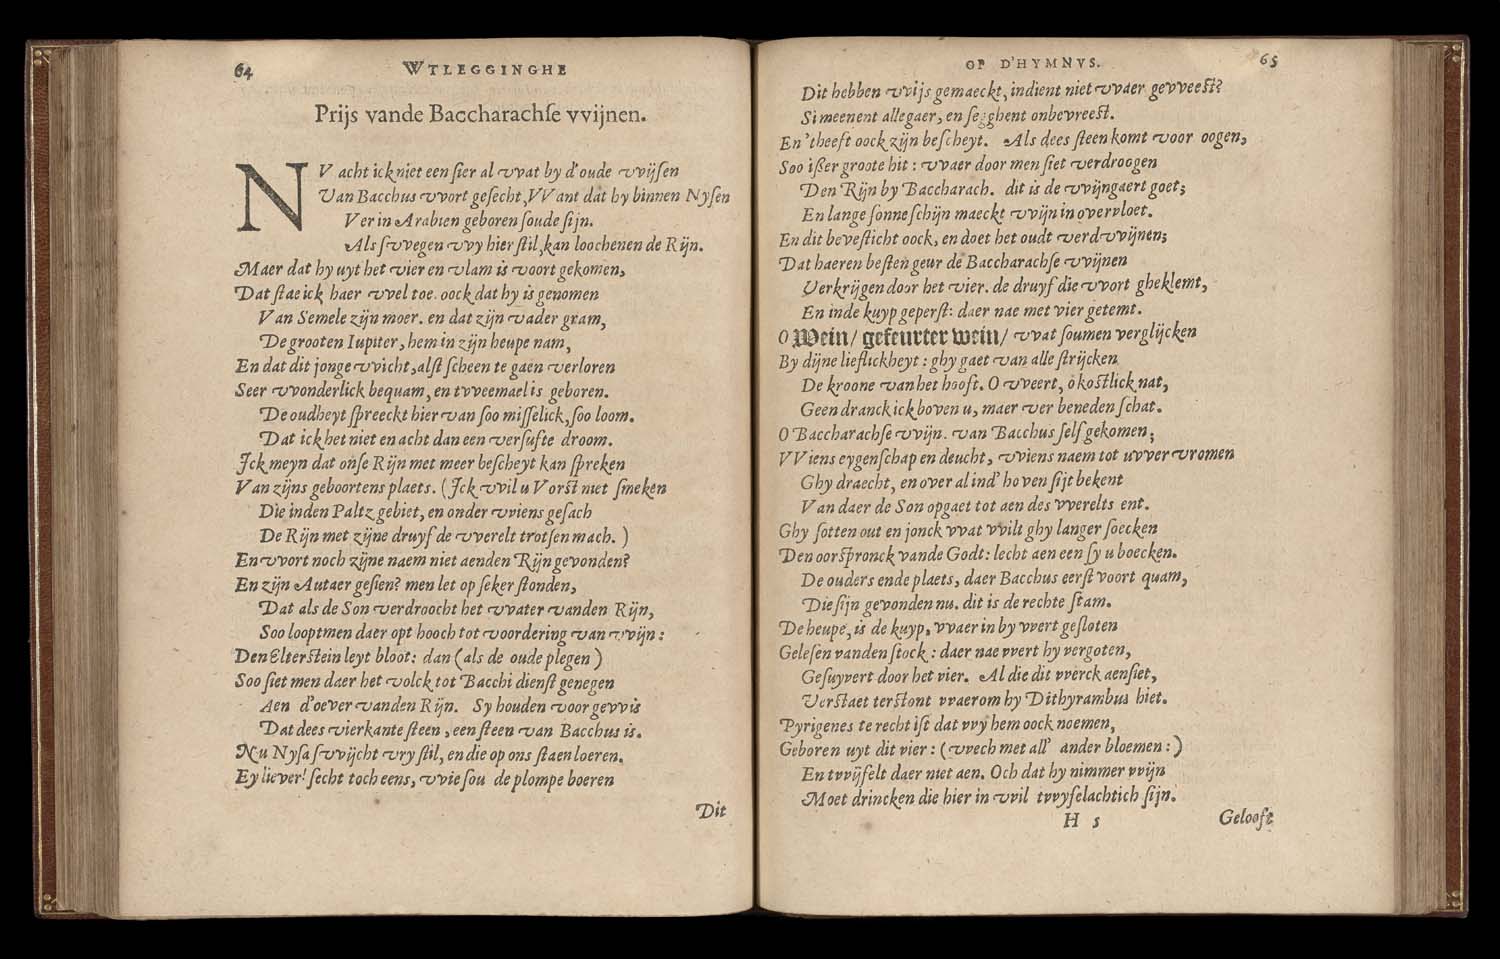 64 WTLEGGINGHE
Prijs vande Baccharachſe vvijnen.
NV acht ick niet een ſier al vvat by d'oude vvijſen
Van Bacchus vvort geſecht, VVant dat hy binnen Nyſen
Ver in Arabien geboren ſoude ſijn.
Als ſvvegen vvy hier ſtil, kan loochenen de Rijn.
Maer dat hy uyt het vier en vlam is voort gekomen,
Dat ſtae ick haer vvel toe. oock dat hy is genomen
Van Semele zijn moer. en dat zijn vader gram,
De grooten Iupiter, hem in zijn heupe nam,
En dat dit jonge vvicht, alſt ſcheen te gaen verloren
Seer vvonderlick bequam, en tvveemael is geboren.
De oudheyt ſpreeckt hier van ſoo miſſelick, ſoo loom.
Dat ick het niet en acht dan een verſufte droom.
Ick meyn dat onſe Rijn met meer beſcheyt kan ſpreken
Van zijns geboortens plaets. (Ick vvil u Vorſt niet ſmeken
Die inden Paltz gebiet, en onder vviens geſach
De Rijn met zijne druyf de vverelt trotſen mach. )
En vvort noch zijne naem niet aenden Rijn gevonden?
En zijn Autaer geſien? men let op ſeker ſtonden,
Dat als de Son verdroocht het vvater vanden Rijn,
Soo looptmen daer opt hooch tot voordering van vvijn:
Den Elterſtein leyt bloot: dan (als de oude plegen )
Soo ſiet men daer het volck tot Bacchi dienſt genegen
Aen d'oever vanden Rijn. Sy houden voor gevvis
Dat dees vierkante ſteen, een ſteen van Bacchus is.
Nu Nyſa ſvvijcht vry ſtil, en die op ons ſtaen loeren.
Ey liever! ſecht toch eens, vvie ſou de plompe boeren
Dit
OP D'HYMNVS. 65
Dit hebben vvijs gemaeckt, indient niet vvaer gevveeſt?
Si meenent allegaer, en ſegghent onbevreeſt.
En 'theeft oock zijn beſcheyt. Als dees ſteen komt voor oogen,
Soo iſſer groote hit: vvaer door men ſiet verdroogen
Den Rijn by Baccharach. dit is de vvijngaert goet;
En lange ſonne ſchijn maeckt vvijn in overvloet.
En dit beveſticht oock, en doet het oudt verdvvijnen;
Dat haeren beſten geur de Baccharachſe vvijnen
Verkrijgen door het vier. de druyf die vvort gheklemt,
En inde kuyp geperſt: daer nae met vier getemt.
O Wein/ gefeurter wein/ vvat ſoumen verglijcken
By dijne lieflickheyt: ghy gaet van alle ſtrijcken
De kroone van het hooft. O vveert, ô koſtlick nat,
Geen dranck ick boven u, maer ver beneden ſchat.
O Baccharachſe vvijn. van Bacchus ſelf gekomen;
VViens eygenſchap en deucht, vviens naem tot uvver vromen
Ghy draecht, en over al ind' hoven ſijt bekent
Van daer de Son opgaet tot aen des vverelts ent.
Ghy ſotten out en jonck vvat vvilt ghy langer ſoecken
Den oorſpronck vande Godt: lecht aen een ſy u boecken.
De ouders ende plaets, daer Bacchus eerſt voort quam,
Die ſijn gevonden nu. dit is de rechte ſtam.
De heupe, is de kuyp, vvaer in hy vvert geſloten
Geleſen vanden ſtock: daer nae vvert hy vergoten,
Geſuyvert door het vier. Al die dit vverck aenſiet,
Verſtaet terſtont vvaerom hy Dithyrambus hiet.
Pyrigenes te recht iſt dat vvy hem oock noemen,
Geboren uyt dit vier: (vvech met all' ander bloemen:)
En tvvijfelt daer niet aen. Och dat hy nimmer vvijn
Moet drincken die hier in vvil tvvyfelachtich ſijn.
H 5 Gelooft